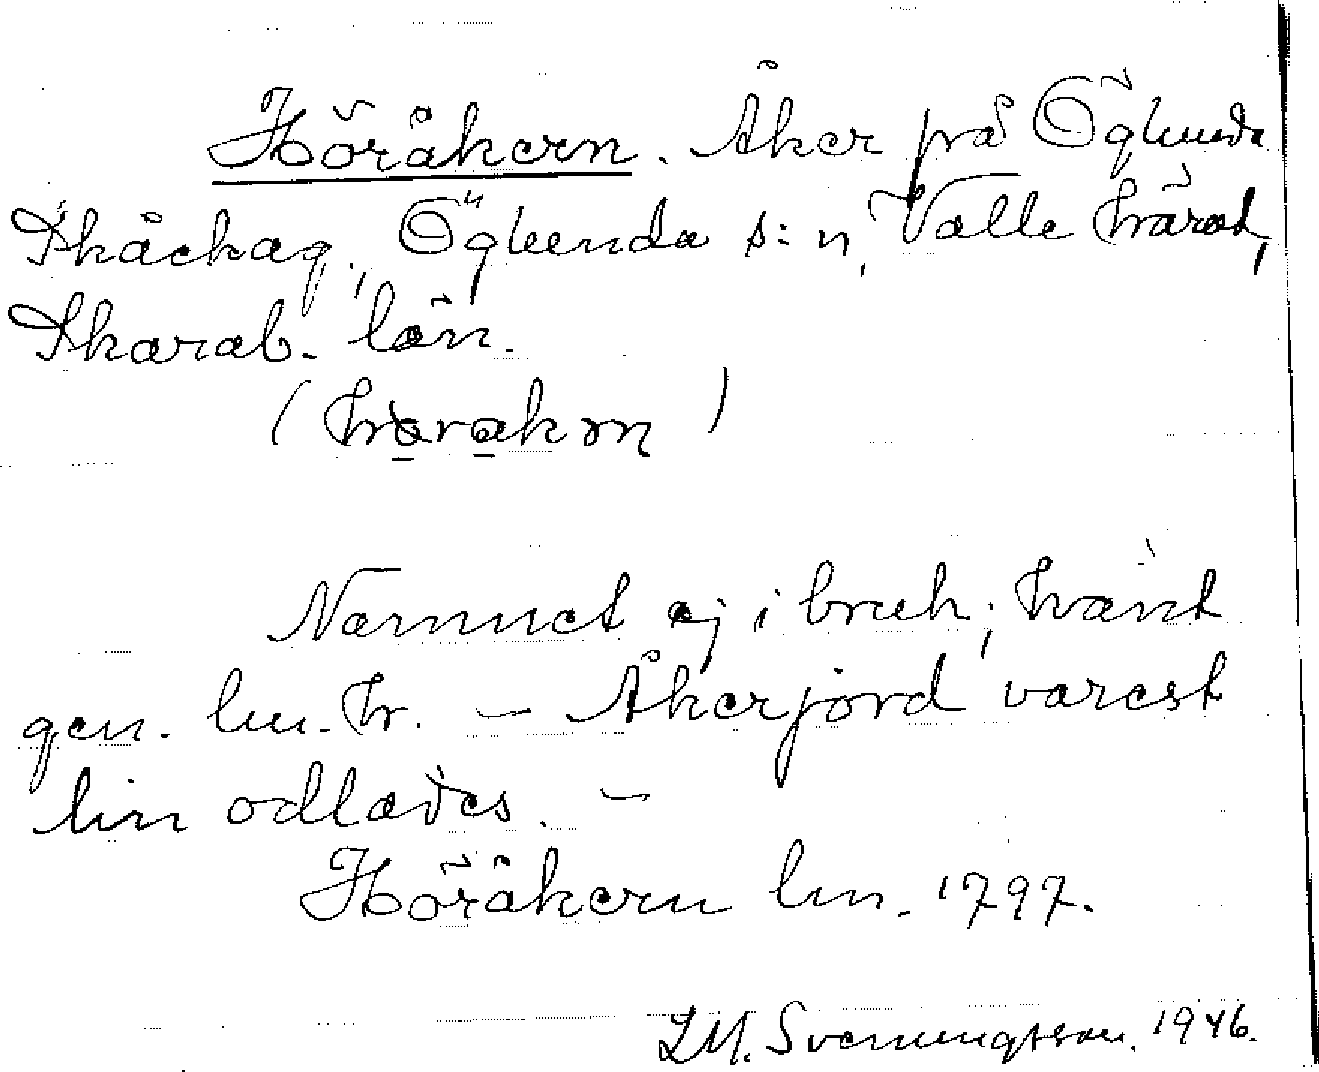 Höråkern. Åker på Öglunda
Skåckag., Öglunda s:n, Valle härad,
Skarab. län.
(
Namnet ej i bruk; känt
gen. lm. kr. — Åkerjord varest
lin odlades. —
Höråkern lm. 1797.
LM. Svenungsson. 1946.